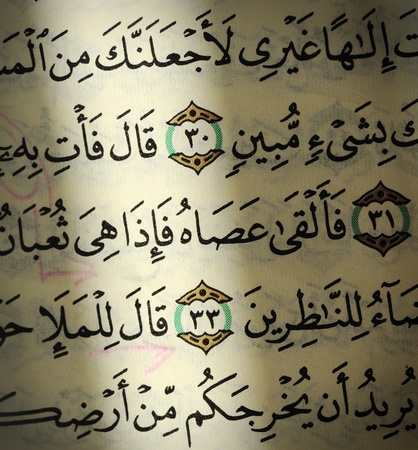 إِلَٰهًا غَيْرِى لَأَجْعَلَنَّكَ مِنَ
بِشَىْءٍ مُّبِينٍ ٣٠ قَالَ فَأْتِ بِهِۦٓ
٣١ فَأَلْقَىٰ عَصَاهُ فَإِذَا هِىَ ثُعْبَانٌ
لِلنَّٰظِرِينَ ٣٣ قَالَ لِلْمَلَإِ
يُرِيدُ أَن يُخْرِجَكُم مِّنْ أَرْضِكُم